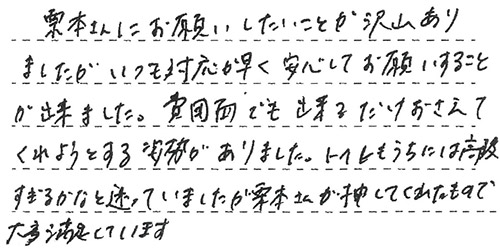 栗本さんにお願いしたいことが沢山あり
ましたがいつも対応が早く安心してお願いすること
が出来ました。費用面でも出来るだけおさえて
くれようとする姿勢がありました。トイレもうちには高級
すぎるかなと迷っていましたが栗本さんが押してくれたもので
大変満足しています